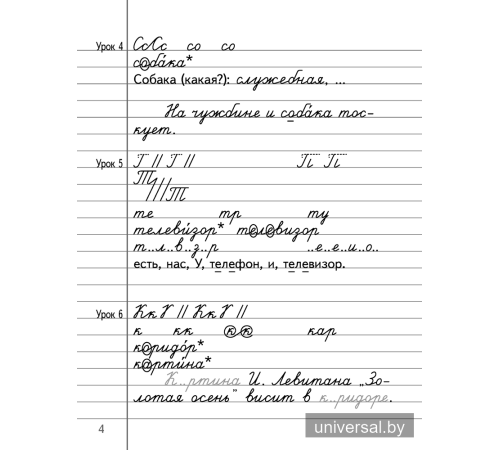 Урок 4 СсСс со со
собáка*
Собака (какая?): служебная, ...
На чужбине и собáка тос-
кует.
Урок 5 Г // Г // Гі Гі
Т///Т
те тр ту
телевúзор* телевизор
т..л..в..з..р ..е..е..и..о..
есть, нас, У, телефон, и, телевизор.
Урок 6 КкГ // КкГ //
к кк кк кар
коридóр*
картúна*
К..ртина И. Левитана „Зо-
лотая осень" висит в к..ридоре.
4
universal.by